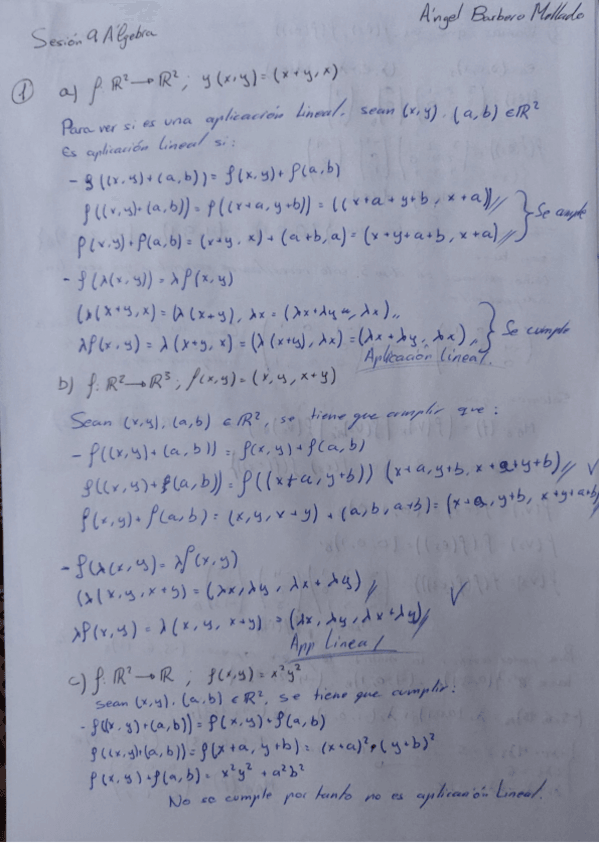 Ángel Barbero Mellado
Sesión 9 Álgebra
① a) f: ℝ² → ℝ² ; y(x,y) = (x+y, x)
Para ver si es una aplicación lineal. sean (x,y), (a,b) ∈ ℝ²
Es aplicación lineal si:
- f((x,y)+(a,b)) = f(x,y) + f(a,b)
f((x,y)+(a,b)) = f((x+a, y+b)) = ((x+a+y+b, x+a)) //
f(x,y)+f(a,b) = (x+y, x) + (a+b, a) = (x+y+a+b, x+a) // } Se cumple
- f(λ(x,y)) = λf(x,y)
(λ(x+y, x) = (λ(x+y), λx = (λx+λy, λx) //
λf(x,y) = λ(x+y, x) = (λ(x+y), λx) = (λx+λy, λx) // } Se cumple
Aplicación lineal.
b) f: ℝ² → ℝ³ ; f(x,y) = (x, y, x+y)
Sean (x,y), (a,b) ∈ ℝ², se tiene que cumplir que:
- f((x,y)+(a,b)) = f(x,y) + f(a,b)
f((x,y)+f(a,b)) = f((x+a, y+b)) (x+a, y+b, x+a+y+b) // ✓
f(x,y)+f(a,b) = (x, y, x+y) + (a, b, a+b) = (x+a, y+b, x+y+a+b) //
- f(λ(x,y) = λf(x,y)
(λ(x, y, x+y) = (λx, λy, λx+λy) // ✓
λf(x,y) = λ(x, y, x+y) = (λx, λy, λx+λy) //
App lineal
c) f: ℝ² → ℝ ; f(x,y) = x²y²
sean (x,y), (a,b) ∈ ℝ², se tiene que cumplir:
- f((x,y)+(a,b)) = f(x,y) + f(a,b)
f((x,y)+(a,b)) = f(x+a, y+b) = (x+a)² · (y+b)²
f(x,y)+f(a,b) = x²y² + a²b²
No se cumple por tanto no es aplicación lineal.